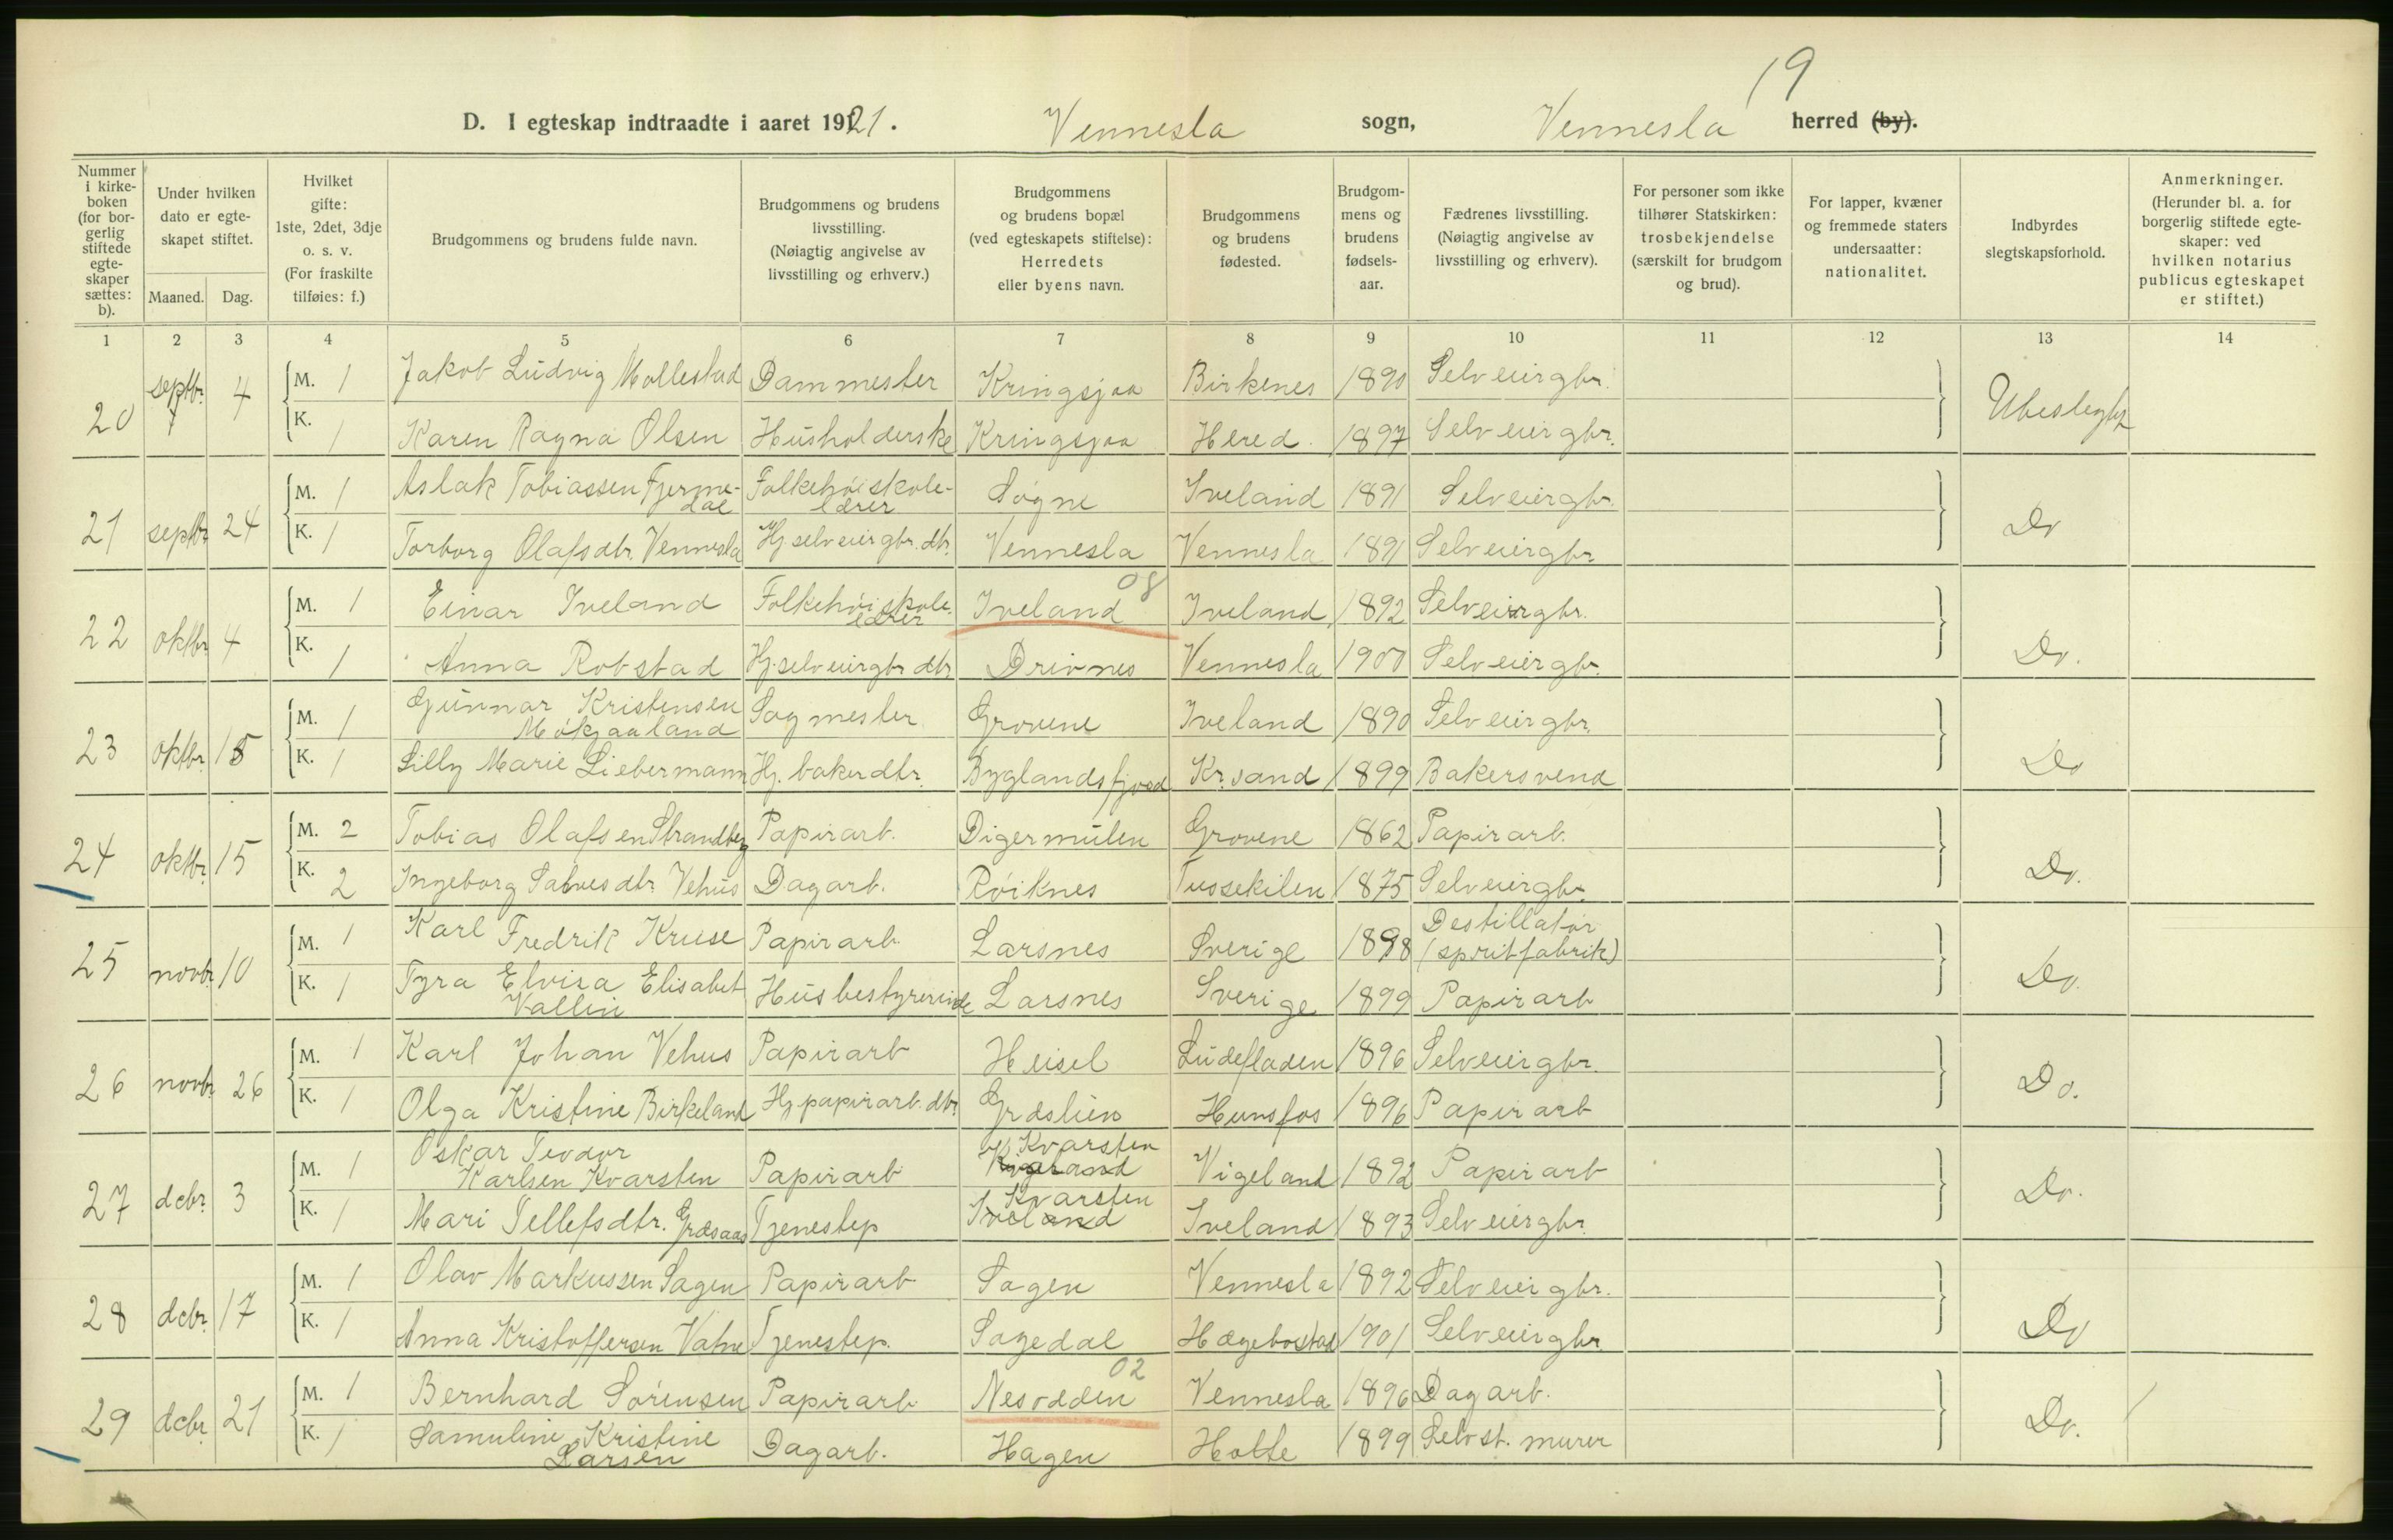 19
D. I egteskap indtraadte i aaret 1921. Vennesla sogn, Vennesla herred (by).
Nummer i kirke-boken (for bor-gerlig stiftede egte-skaper sættes: b).
Under hvilken dato er egte-skapet stiftet.
Maaned. Dag.
Hvilket gifte: 1ste, 2det, 3dje o. s. v. (For fraskilte tilføies: f.)
Brudgommens og brudens fulde navn.
Brudgommens og brudens livsstilling. (Nøiagtig angivelse av livsstilling og erhverv.)
Brudgommens og brudens bopæl (ved egteskapets stiftelse): Herredets eller byens navn.
Brudgommens og brudens fødested.
Brudgom-mens og brudens fødsels-aar.
Fædrenes livsstilling. (Nøiagtig angivelse av livsstilling og erhverv).
For personer som ikke tilhører Statskirken: trosbekjendelse (særskilt for brudgom og brud).
For lapper, kvæner og fremmede staters undersaatter: nationalitet.
Indbyrdes slegtskapsforhold.
Anmerkninger. (Herunder bl. a. for borgerlig stiftede egte-skaper: ved hvilken notarius publicus egteskapet er stiftet.)
1 2 3 4 5 6 7 8 9 10 11 12 13 14
20 septbr. 4 M. 1 Jakob Ludvig Mollestad Dammester Kringsjaa Birkenes 1890 Selveiergbr. Ubeslegtet
K. 1 Karen Ragna Olsen Husholderske Kringsjaa Hered. 1897 Selveiergbr.
21 septbr 24 M. 1 Aslak Tobiassen Fjerme-dal Folkehøiskole-lærer Søgne Iveland 1891 Selveiergbr. Do
K. 1 Torborg Olafsdtr. Vennesla Hj. selveiergbr. dtr. Vennesla Vennesla 1891 Selveiergbr.
08
22 oktbr 4 M. 1 Einar Iveland Folkehøiskole-lærer Iveland Iveland 1892 Selveiergbr. Do.
K. 1 Anna Robstad Hj. selveiergbr dtr Drivnes Vennesla 1900 Selveiergbr.
23 oktbr. 15 M. 1 Gunnar Kristensen Møkjaaland Sagmester Grovene Iveland 1890 Selveiergbr. Do
K. 1 Lilly Marie Liebermann Hj. baker dtr. Byglandsfjord Kr.sand 1899 Bakersvend
24 oktbr. 15 M. 2 Tobias Olafsen Strandberg Papirarb. Digermulen Grovene 1862 Papirarb. Do.
K. 2 Ingeborg Salves dtr. Vehus Dagarb. Røiknes Tussekilen 1875 Selveiergbr.
25 novbr. 10 M. 1 Karl Fredrik Kruse Papirarb. Larsnes Sverige 1898 Destillatør (spritfabrik) Do.
K. 1 Tyra Elvira Elisabet Vallin Husbestyrerinde Larsnes Sverige 1899 Papirarb
26 novbr. 26 M. 1 Karl Johan Vehus Papirarb Heisel Ludefladen 1896 Selveiergbr. Do.
K. 1 Olga Kristine Birkeland Hj. papirarb. dtr. Græslien Hunsfos 1896 Papirarb
27 dcbr. 3 M. 1 Oskar Teodor Karlsen Kvarsten Papirarb Kvarsten Vigeland 1892 Papirarb Do.
K. 1 Mari Tellefsdtr. Græsaas Tjenestep Iveland Kvarsten Iveland 1893 Selveiergbr.
28 dcbr. 17 M. 1 Olav Markussen Sagen Papirarb Sagen Vennesla 1892 Selveiergbr. Do
K. 1 Anna Kristoffersen Vatne Tjenestep. Sagedal Hægebostad 1901 Selveiergbr.
02
29 dcbr. 21 M. 1 Bernhard Sørensen Papirarb Nesodden Vennesla 1896 Dagarb. Do.
K. 1 Samuline Kristine Larsen Dagarb. Hagen Holte 1899 Selvst. murer